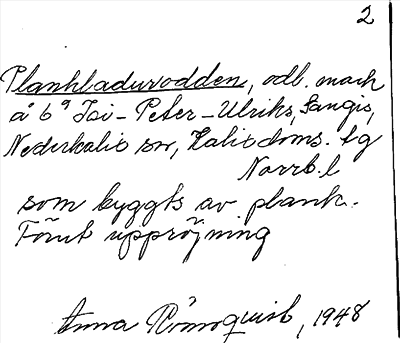 2
Plankladuvodden, odl. mark
å b⁹ Joi-Peter-Ulriks, Sangis,
Nederkalix sn, Kalix doms. tg
Norrb. l
som byggts av plank.
Förut uppröjning
Anna Römquist, 1948